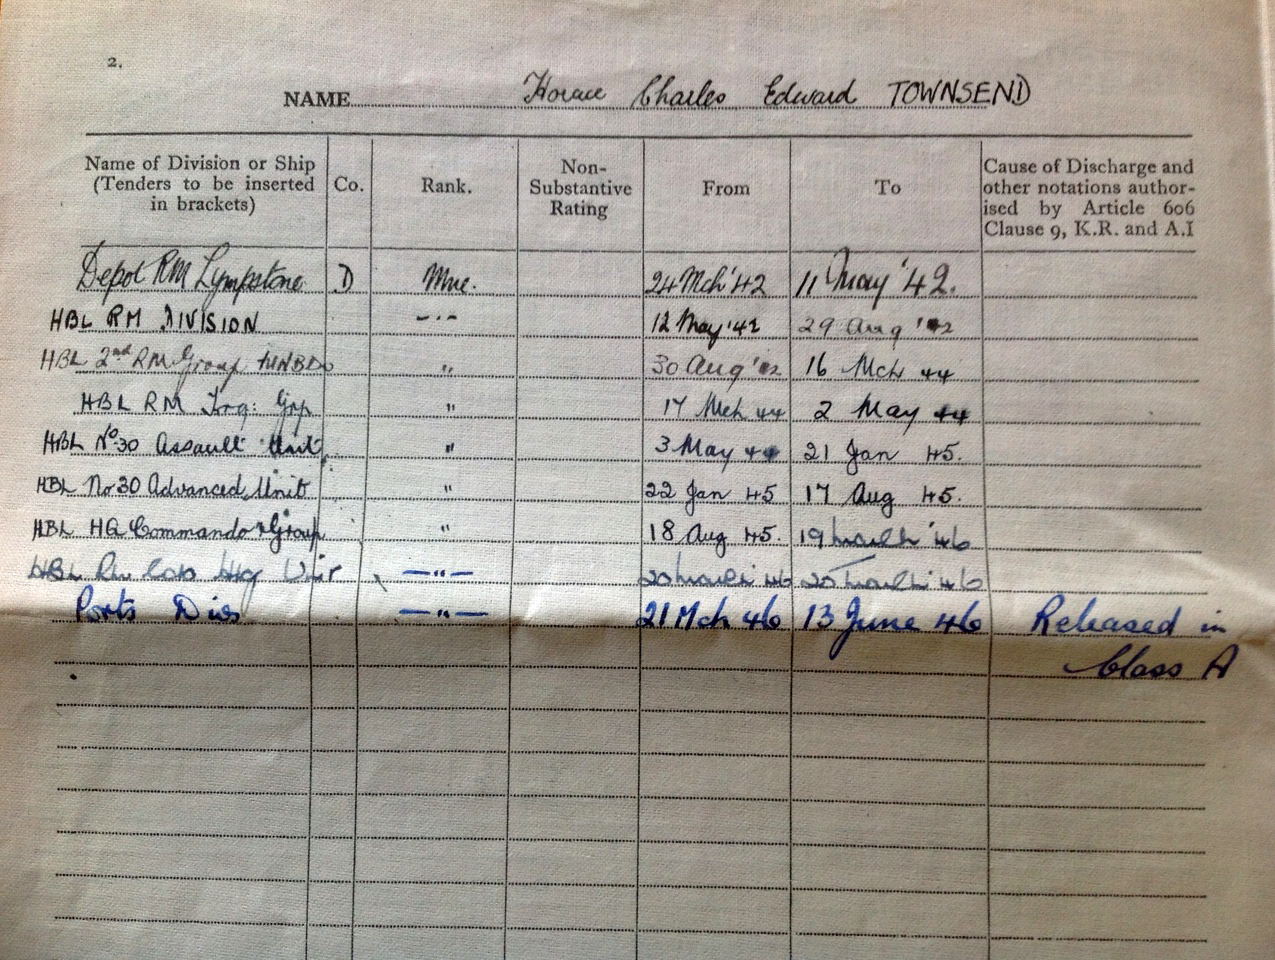 2.
NAME Horace Charles Edward TOWNSEND
Name of Division or Ship (Tenders to be inserted in brackets) Co. Rank. Non-Substantive Rating From To Cause of Discharge and other notations author-ised by Article 606 Clause 9, K.R. and A.I
Depot RM Lympstone D Mne. 24 Mch '42 11 May '42.
HBL RM DIVISION —"— 12 May '42 29 Aug '42
HBL 2nd RM Group MNBDO " 30 Aug '42 16 Mch 44
HBL RM Trg: Grp " 17 Mch 44 2 May 44
HBL No 30 Assault Unit " 3 May 44 21 Jan 45.
HBL No 30 Advanced Unit " 22 Jan 45 17 Aug 45.
HBL HQ Commando Group " 18 Aug 45. 19 March '46
HBL RM —"— 20 March '46 20 March '46
Ports Div —"— 21 Mch 46 13 June 46 Released in
Class A